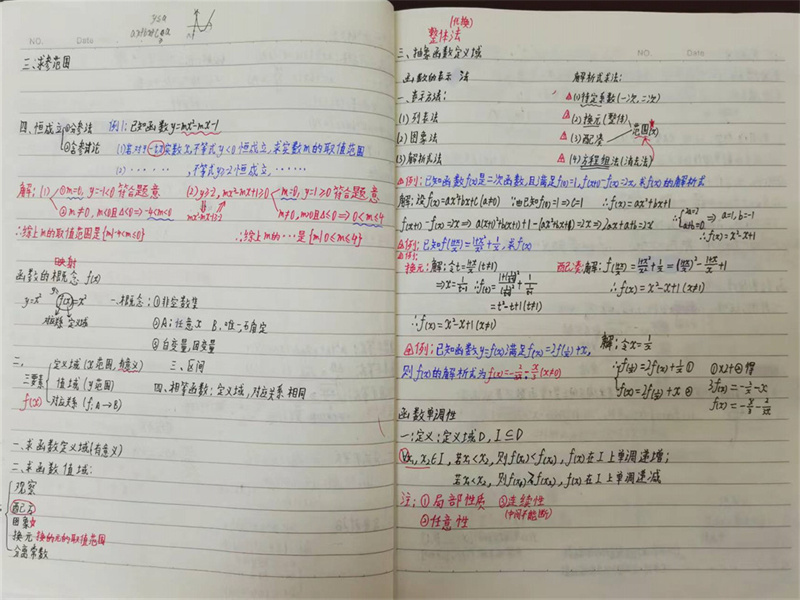 y≤a
NO. Date
三、求参范围
四、恒成立 ①分参法 例1:已知函数y=mx²-mx-1
②含参讨论 (1)若对于一切实数x,不等式y<0恒成立,求实数m的取值范围
(2)······,不等式y>-2恒成立,······
解:(1) ①m=0, y=-1<0符合题意
②m≠0, m<0且Δ<0⇒-4<m<0
∴综上m的取值范围是{m|-4<m≤0}
(2) y≥-2, mx²-mx+1≥0
m=0, y=1≥0符合题意
m≠0, m>0且Δ≤0⇒0<m≤4
∴综上m的···是{m|0≤m≤4}
映射
函数的概念 f(x)
y=x² f(x)=x²
对应关系 定义域
一、概念:①非空数集
②A:任意x B:唯一确定
③自变量,因变量
二、三要素 定义域(x范围,有意义)
值域(y范围)
f(x) 对应关系(f:A→B)
三、区间
四、相等函数:定义域,对应关系相同
一、求函数定义域(有意义)
二、求函数值域:
观察
配方
图象
换元 换的元的取值范围
分离常数
(代换)
整体法
三、抽象函数定义域
NO. Date
函数的表示法
一、表示方法:
(1)列表法
(2)图象法
(3)解析式法
解析式求法:
(1)待定系数(一次,二次)
(2)换元(整体)
(3)配凑
范围(x)
(4)方程组法(消去法)
例:已知函数f(x)是二次函数,且满足f(0)=1,f(x+1)-f(x)=2x,求f(x)的解析式
解:设f(x)=ax²+bx+c(a≠0) ∵已知f(0)=1⇒c=1 ∴f(x)=ax²+bx+1
f(x+1)-f(x)=2x⇒a(x+1)²+b(x+1)+1-(ax²+bx+1)=2x⇒2ax+a+b=2x
∴{2a=2 a+b=0 ⇒a=1,b=-1
∴f(x)=x²-x+1
例:已知f(1+x/x)=1+x²/x²+1/x,求f(x)
换元:解:令t=1+x/x(t≠1)
⇒x=1/t-1
=t²-t+1(t≠1)
∴f(x)=x²-x+1(x≠1)
配凑:解:f(1+x/x)=1+x²/x²+1/x=(1+x/x)²-1+x/x+1
∴f(x)=x²-x+1(x≠1)
例:已知函数y=f(x)满足f(x)=2f(1/x)+x,
则f(x)的解析式为f(x)=-2/3x-x/3(x≠0)
解:令x=1/x
∴{f(1/x)=2f(x)+1/x ①
f(x)=2f(1/x)+x ②
①×2+②得
3f(x)=-2/x-x
f(x)=-x/3-2/3x
函数单调性
一、定义:定义域D, I⊆D
∀x₁,x₂∈I,若x₁<x₂,则f(x₁)<f(x₂),f(x)在I上单调递增;
若x₁<x₂,则f(x₁)>f(x₂),f(x)在I上单调递减
注:①局部性质 ③连续性
(中间不能断)
②任意性